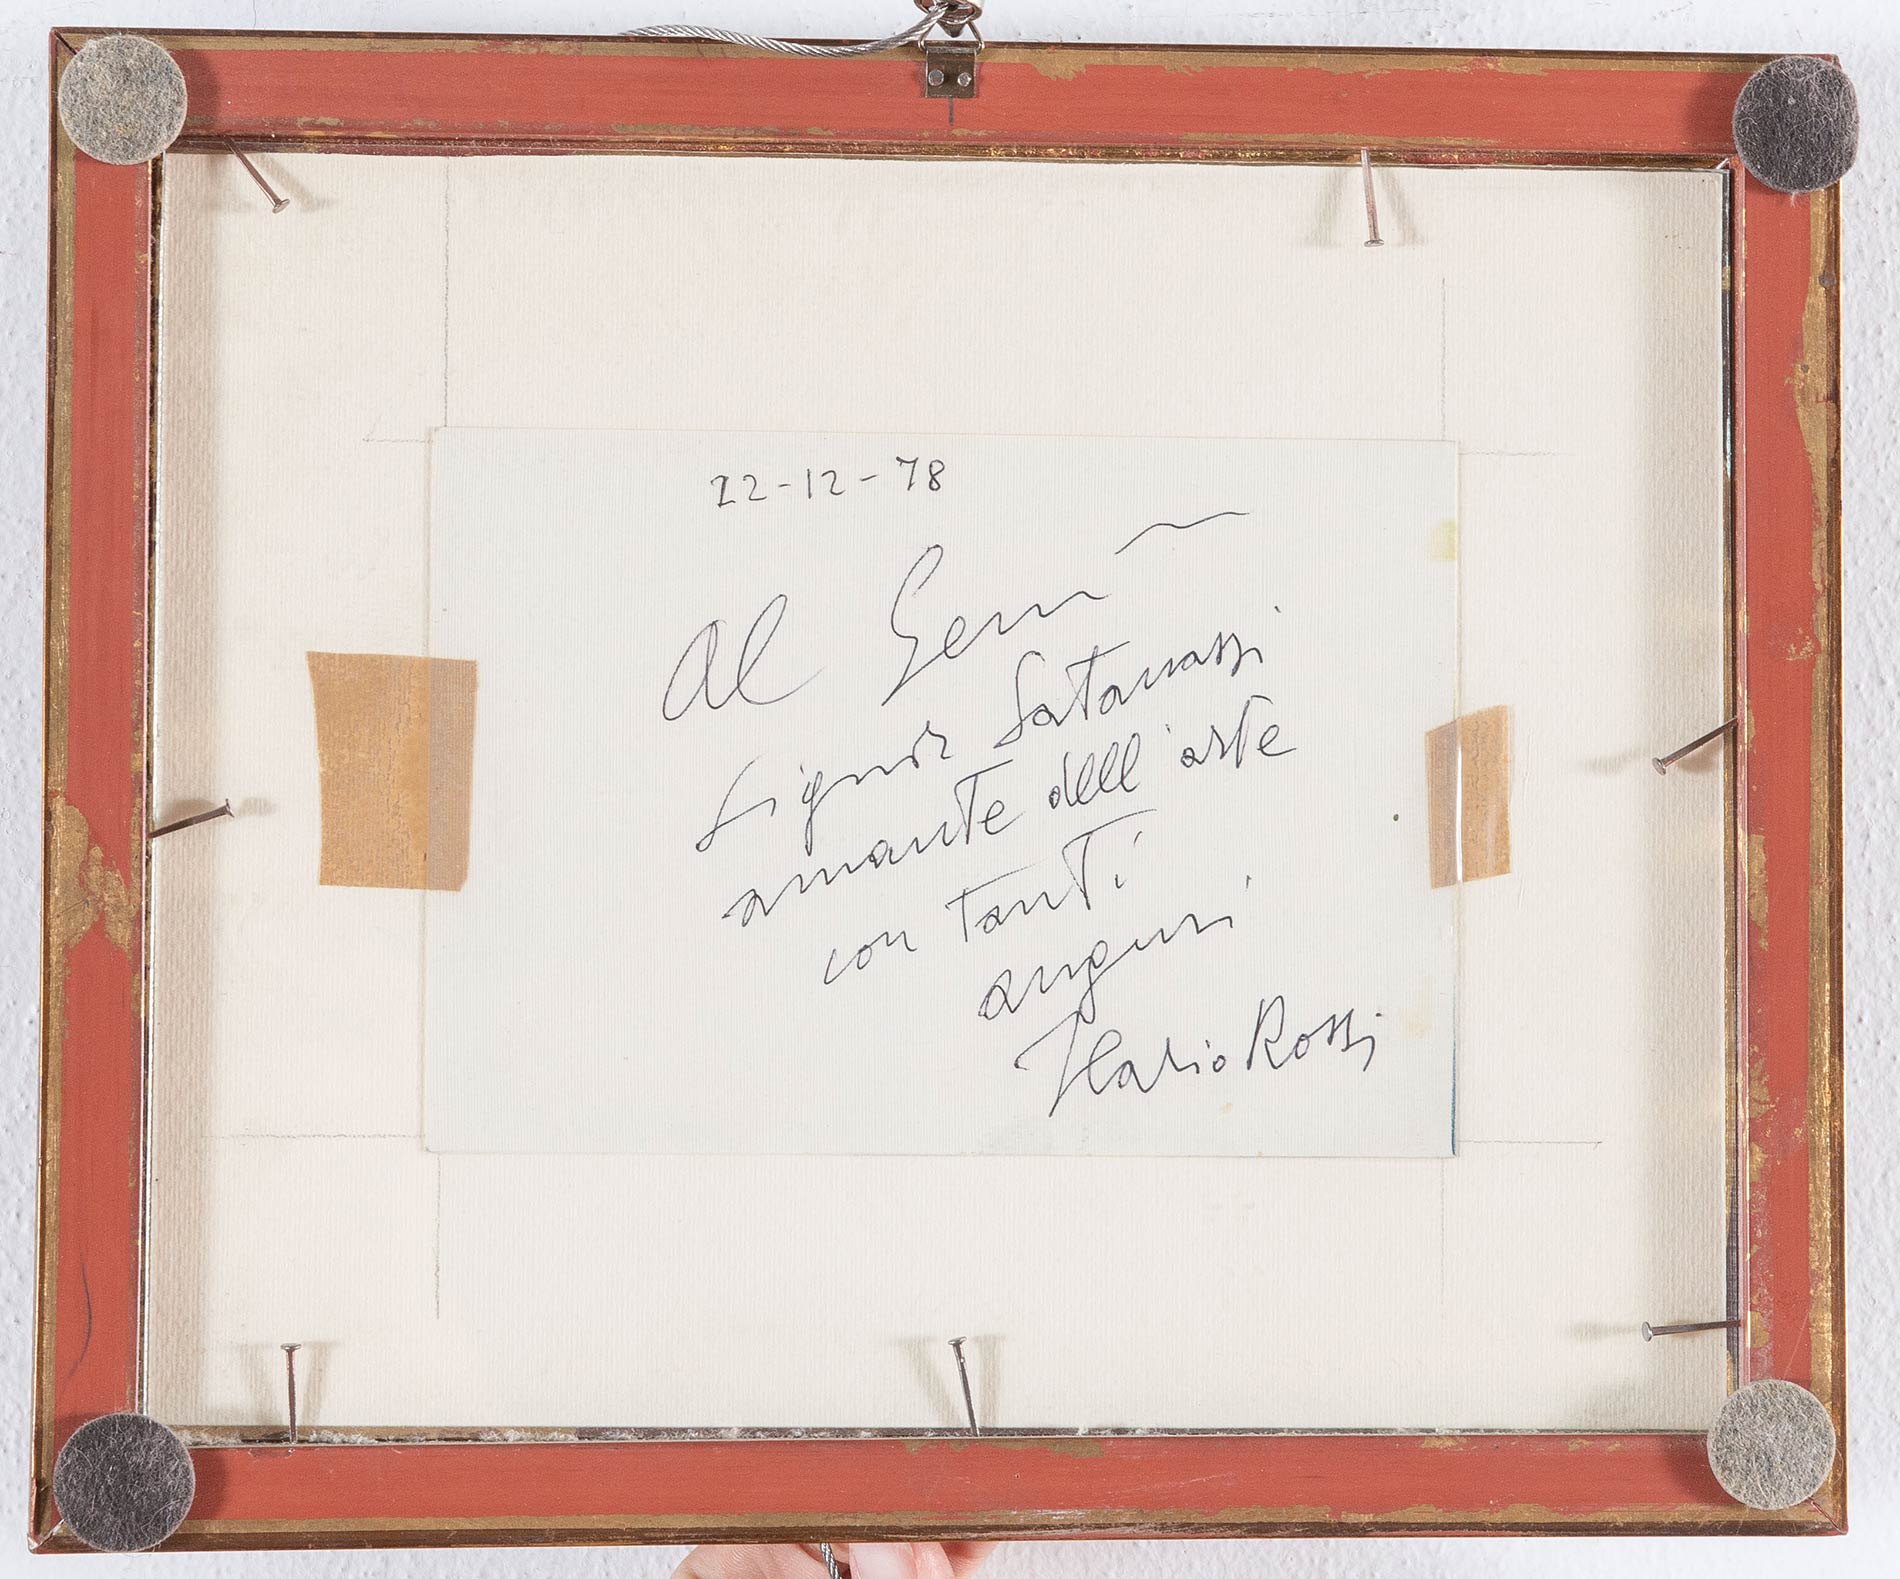 22-12-78
Al Gen
Signor Satanassi
amante dell'arte
con tanti
auguri
Ilario Rossi